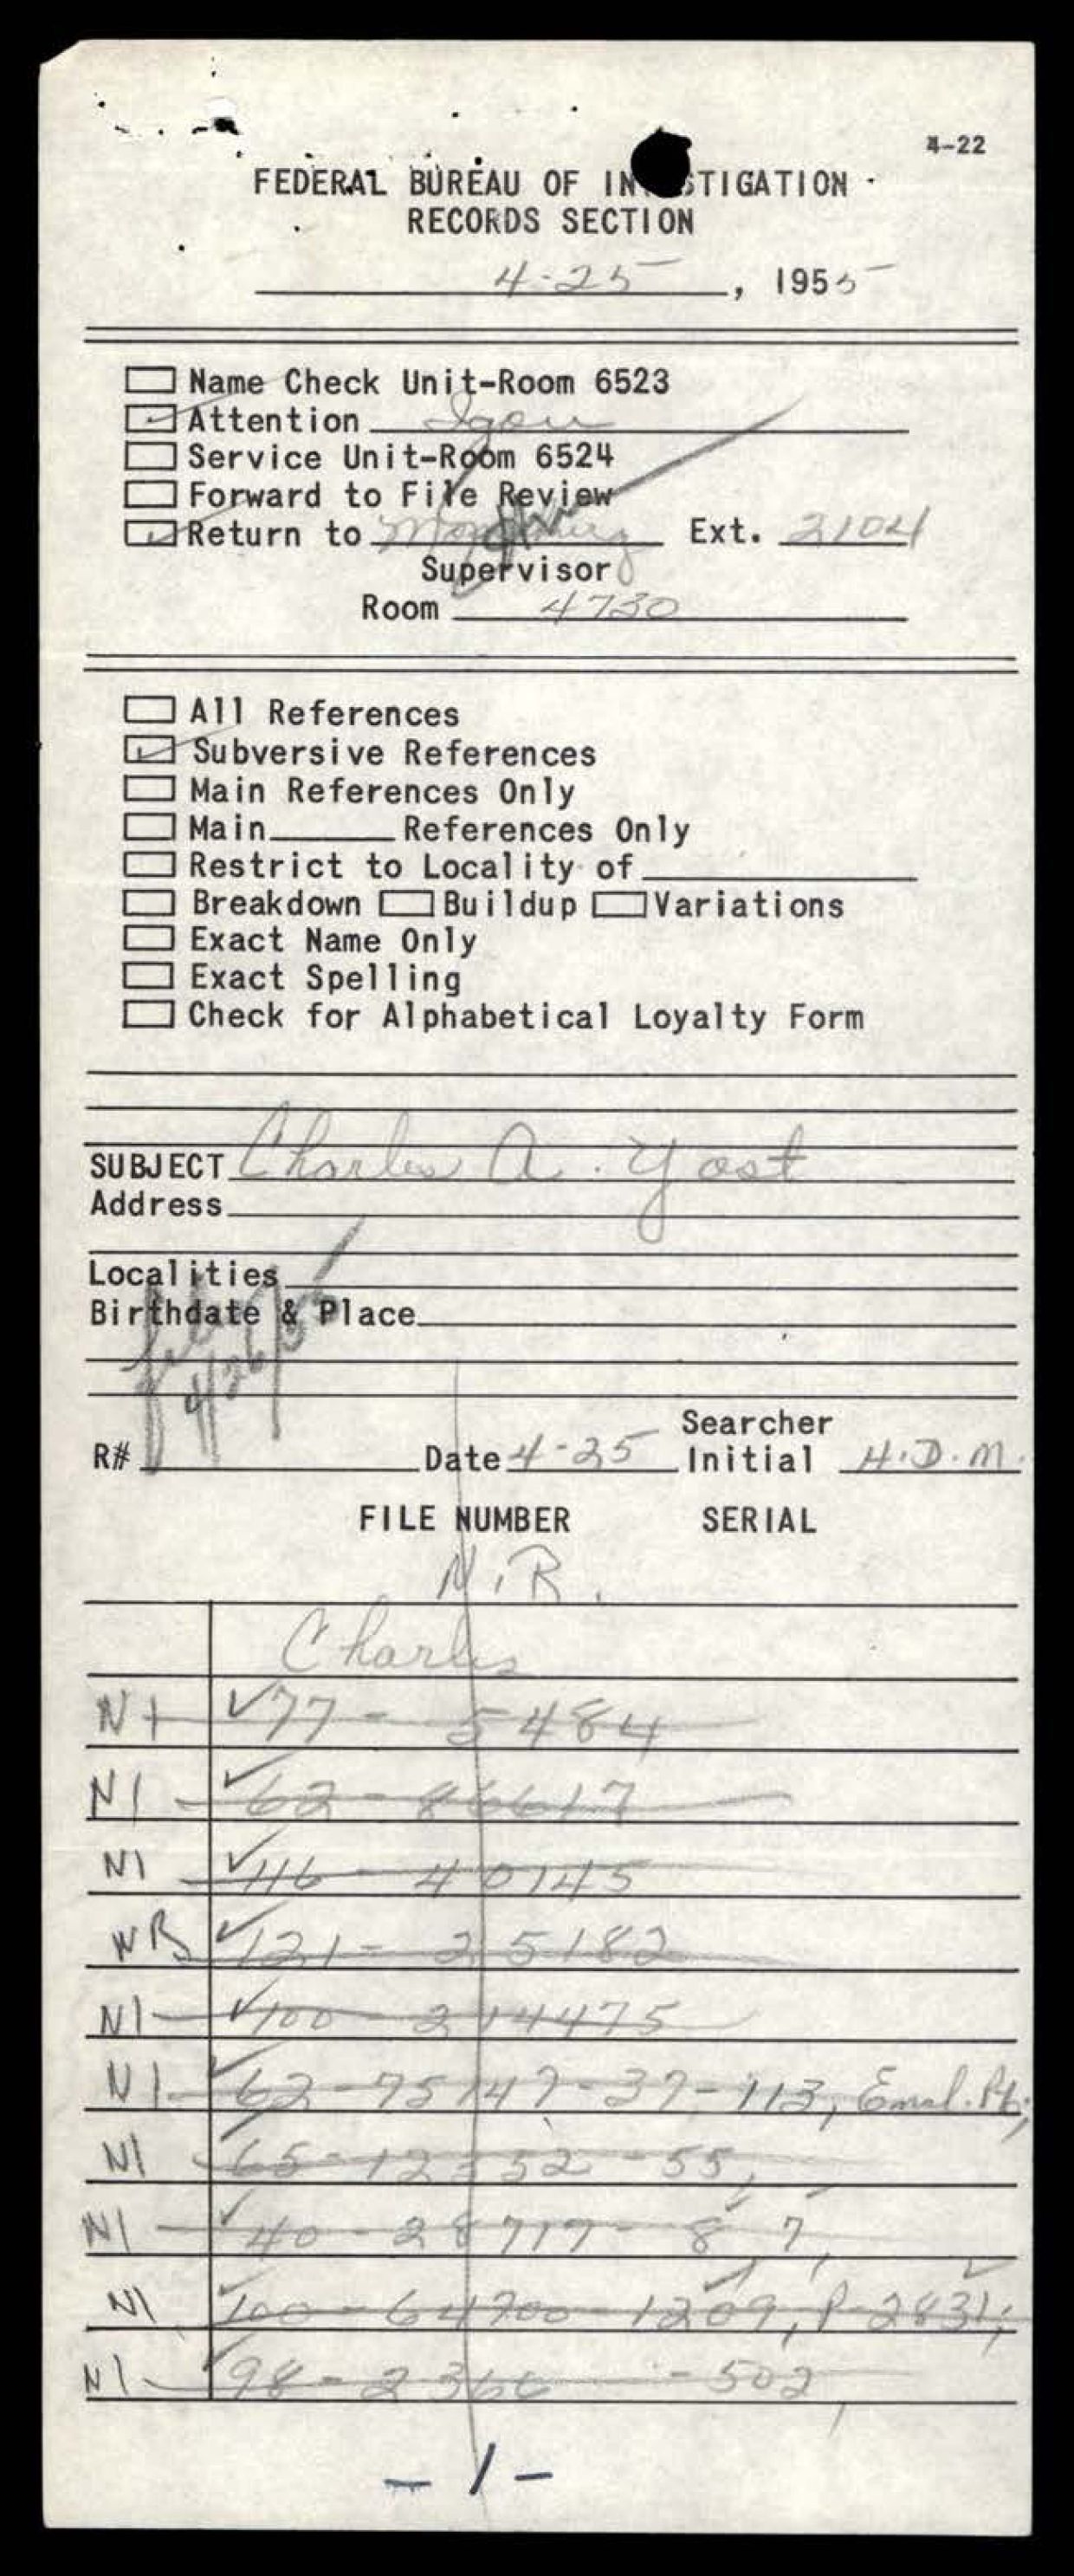 4-22
FEDERAL BUREAU OF IN STIGATION
RECORDS SECTION
4-25, 1955
Name Check Unit-Room 6523
Attention
Service Unit-Room 6524
Forward to File Review
Return to Ext. 2104
Supervisor
Room 4730
All References
Subversive References
Main References Only
Main References Only
Restrict to Locality of
Breakdown Buildup Variations
Exact Name Only
Exact Spelling
Check for Alphabetical Loyalty Form
SUBJECT Charles A. Yost
Address
Localities
Birthdate & Place
4/26/55
Searcher
R# Date 4-25 Initial H.D.M.
FILE NUMBER SERIAL
N.R.
Charles
NI 77- 5484
NI 62- 86617
NI 116- 40145
NR 121- 25182
NI 100- 214475
NI 62-75147-37-113,
NI 65-12352-55,
NI 40-28717-8, 7,
NI 100-64700-1209, P-2831;
NI 98-2366 -502,
-1-